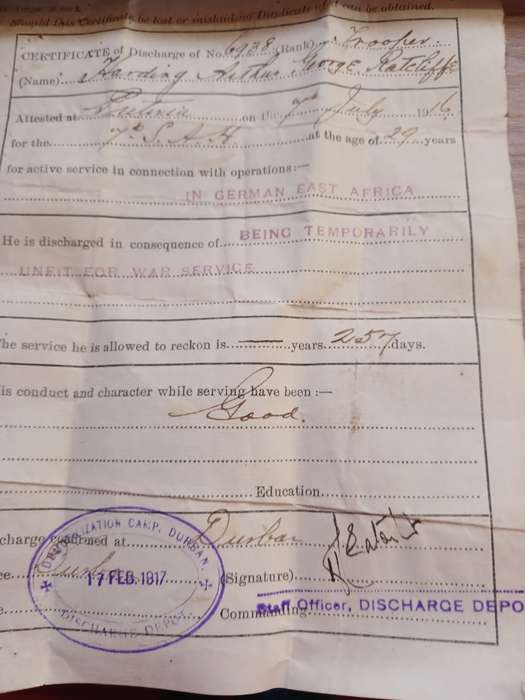 Should this Certificate be lost or mislaid no Duplicate of it can be obtained.
CERTIFICATE of Discharge of No. 6938 (Rank) Trooper
(Name) Harding Arthur George Ratcliffe
Attested at on the 7th July 1916
for the 7th S.A.H. at the age of 29 years
for active service in connection with operations:—
IN GERMAN EAST AFRICA
He is discharged in consequence of BEING TEMPORARILY
UNFIT FOR WAR SERVICE
The service he is allowed to reckon is — years 257 days.
is conduct and character while serving have been :—
Good.
Education
charge confirmed at Durban
DEMOBILIZATION CAMP, DURBAN.
17 FEB. 1917
DISCHARGE DEPOT
(Signature)
Commanding
Staff Officer, DISCHARGE DEPO